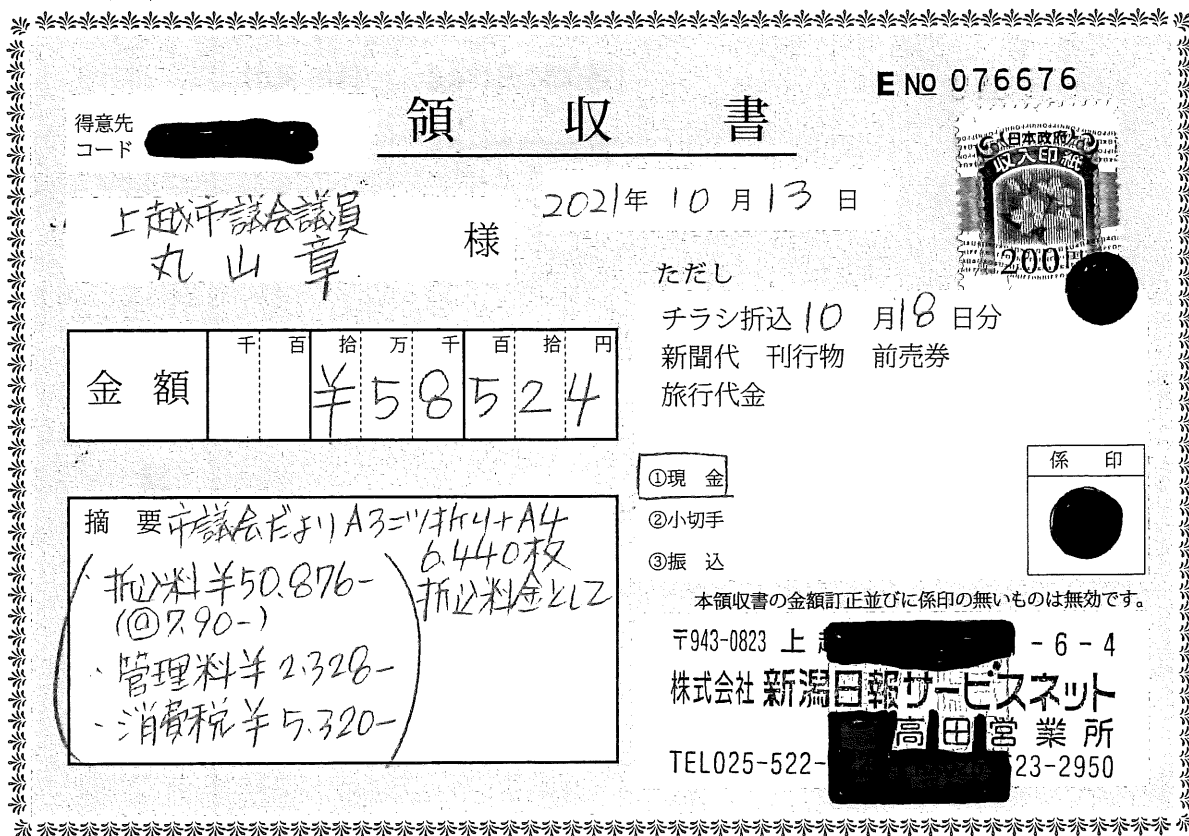 E No 076676
領収書
得意先
コード
日本政府
収入印紙
200
2021年 10月 13日
上越市議会議員
丸山 章 様
ただし
チラシ折込 10月 18日分
新聞代 刊行物 前売券
旅行代金
千 百 拾 万 千 百 拾 円
金額 ¥58524
①現 金
②小切手
③振 込
係 印
摘 要 市議会だより A3二ツ折り+A4
6.440枚
折込料金として
・折込料¥50.876-
(@7.90-)
・管理料¥2.328-
・消費税¥5.320-
本領収書の金額訂正並びに係印の無いものは無効です。
〒943-0823 上 -6-4
株式会社 新潟日報サービスネット
高田営業所
TEL025-522- 523-2950